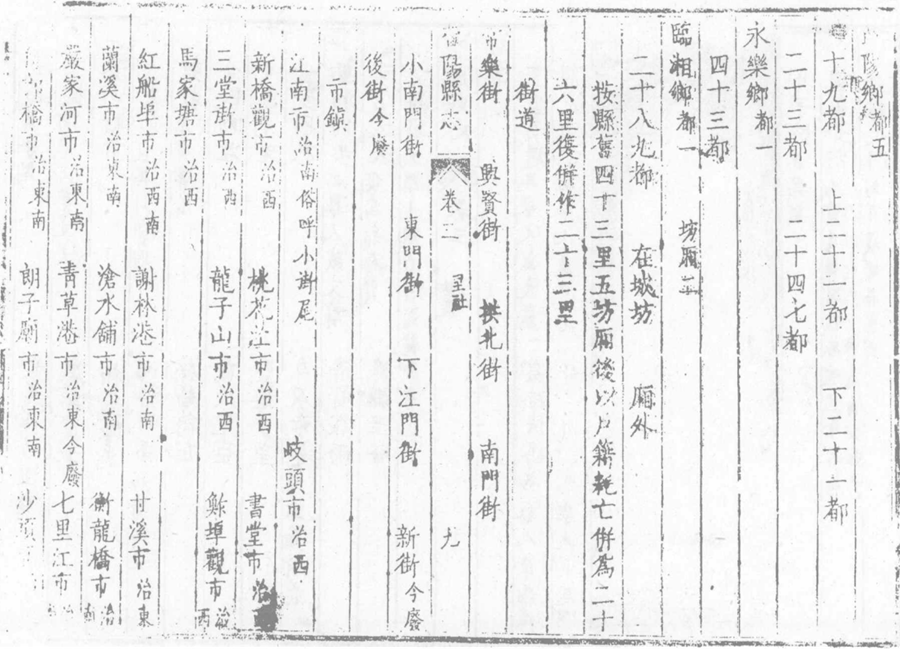 陽鄉都五
十九都 上二十一都 下二十一都
二十三都 二十四七都
永樂鄉都一
四十三都
臨湘鄉都一 坊廂二
二十八九都 在城坊 廂外
按縣舊四十三里五坊廂後以戶籍耗亡併為二十
六里復併作二十三里
街道
樂街 興賢街 拱北街 南門街
陽縣志 卷三 里社 九
小南門街 東門街 下江門街 新街今廢
後街今廢
市鎮
江南市治南俗呼小街尾 岐頭市治西
新橋觀市治西 桃花江市治西 書堂市治
三堂街市治西 龍子山市治西 鮓埠觀市治西
馬家塘市治西
紅船埠市治西南 謝林港市治南 甘溪市治東
蘭溪市治東南 滄水鋪市治南 衡龍橋市治南
嚴家河市治東南 青草港市治東今廢 七里江市治
橋市治東南 朗子廟市治東南 沙頭